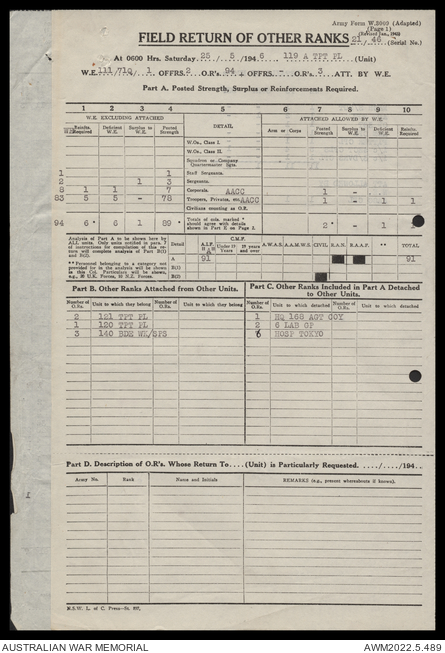 Army Form W.3009 (Adapted)
(Page 1)
FIELD RETURN OF OTHER RANKS 21 / 46 (Serial No.)
At 0600 Hrs. Saturday 25 / 5 / 194 6 119 A TPT PL (Unit)
W.E. 111/710 / 1 OFFRS. 2 O.R's. 94 + OFFRS. - O.R's. 3 ATT. BY W.E.
Part A. Posted Strength, Surplus or Reinforcements Required.
1 2 3 4 5 6 7 8 9 10
W.E. EXCLUDING ATTACHED DETAIL ATTACHED ALLOWED BY W.E.
Reinfts. Required Deficient W.E. Surplus to W.E. Posted Strength Arms or Corps Posted Strength Surplus to W.E. Deficient W.E. Reinfts. Required
W.Os., Class I.
W.Os., Class II.
Squadron or Company Quartermaster Sgts.
1 1 Staff Sergeants.
2 1 3 Sergeants.
8 1 1 7 Corporals. AACC 1 -
83 5 5 - 78 Troopers, Privates, etc. AACC 1 - 1 1
Civilians counting as O.R.
94 6 * 6 1 89 * Totals of cols. marked * should agree with details shown in Part E on Page 3. 2 * - 1
Analysis of Part A to be shown here by ALL units. Only units notified in para. 7 of instructions for compilation of this return will complete analysis of Part B(i) and B(ii).
** Personnel belonging to a category not provided for in the analysis will be shown in this Col. Particulars will be shown, e.g., 30 U.K. Forces, 10 N.Z. Forces.
Detail A.I.F. C.M.F. Under 19 years 19 years and over A.W.A.S. A.A.M.W.S. CIVIL R.A.N. R.A.A.F. ** TOTAL
A 91 91
B(i)
B(ii)
Part B. Other Ranks Attached from Other Units.
Number of O.Rs. Unit to which they belong Number of O.Rs. Unit to which they belong
2 121 TPT PL
1 120 TPT PL
3 140 BDE WK/SPS
Part C. Other Ranks Included in Part A Detached to Other Units.
Number of O.Rs. Unit to which detached Number of O.Rs. Unit to which detached
1 HQ 168 AGT COY
2 6 LAB GP
6 HOSP TOKYO
Part D. Description of O.R's. Whose Return To....(Unit) is Particularly Requested...../...../194..
Army No. Rank Name and Initials REMARKS (e.g., present whereabouts if known).
N.S.W. L. of C. Press—St. 627.
AUSTRALIAN WAR MEMORIAL AWM2022.5.489